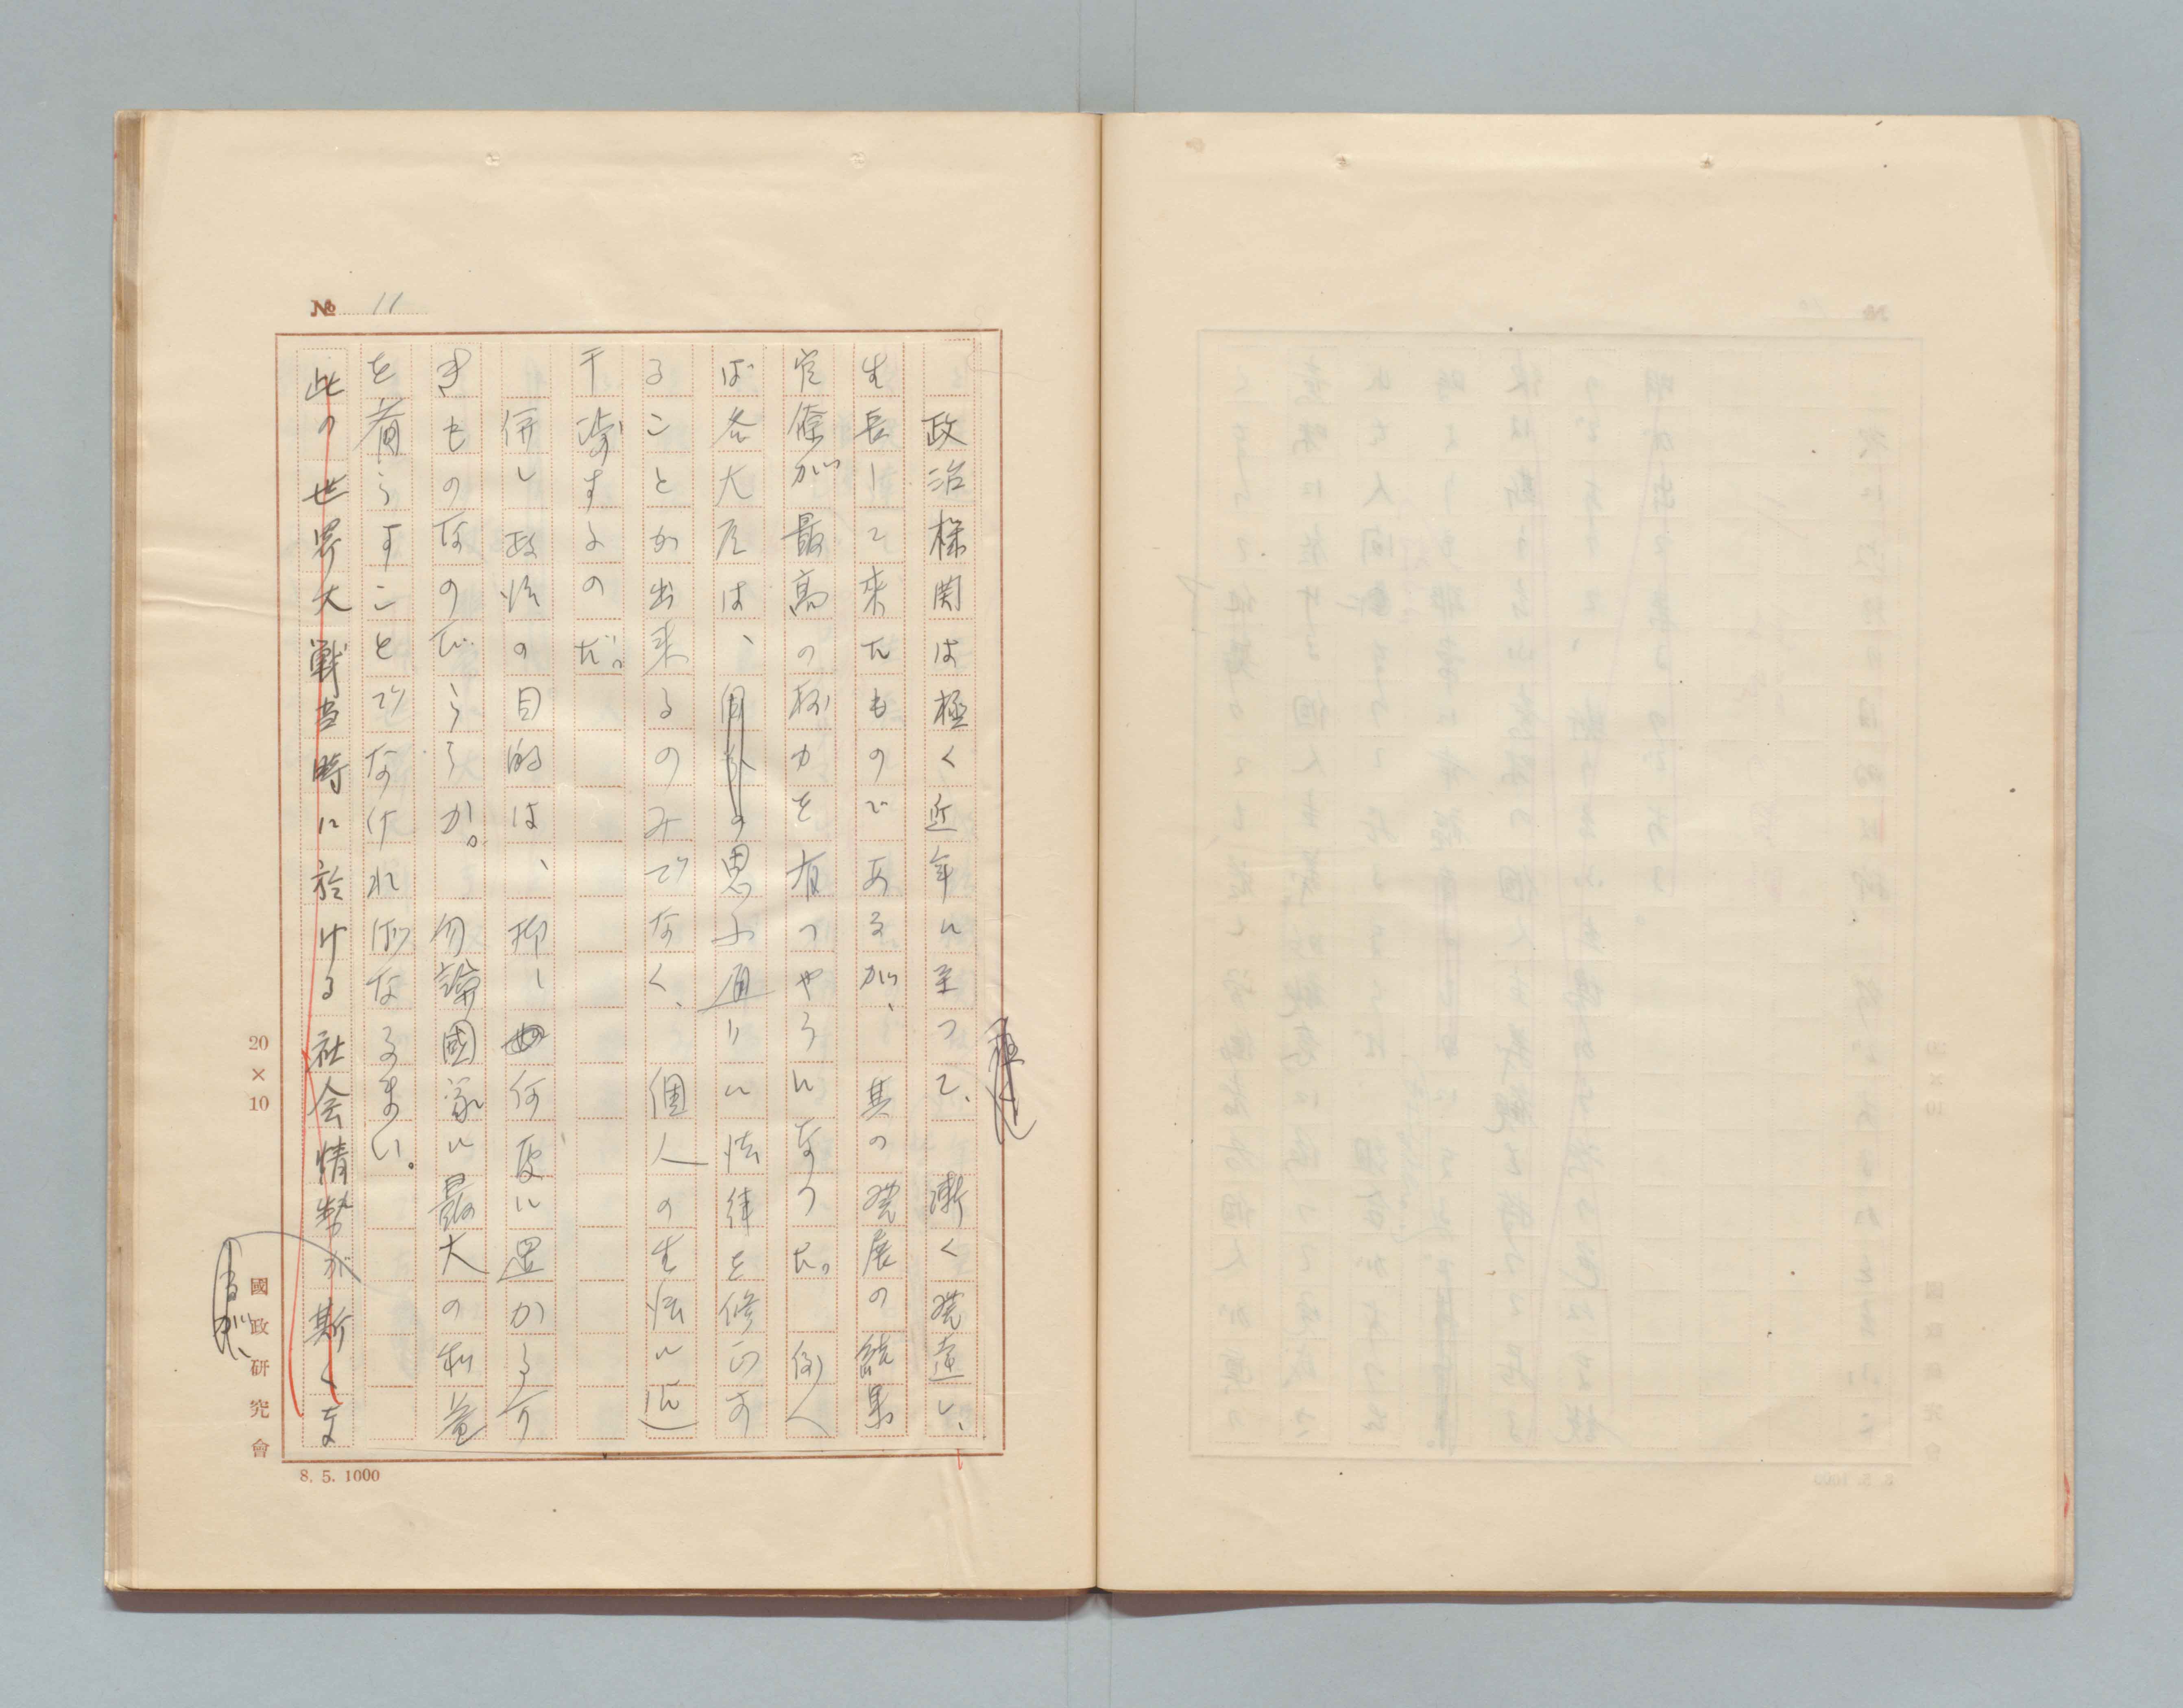 № 11
政治機関は極く近年に至つて、漸く発達し、
生長して来たものであるが、其の発展の結果
官僚が最高の権力を有つやうになつた。例へ
ば各大臣は、自分の思ふ通りに法律を修正す
ることが出来るのみでなく、個人の生活に迄
干渉するのだ。
併し政治の目的は、抑し何処に置かる可
きものなのだらうか。勿論國家に最大の利益
を齎らすことでなければなるまい。
此の世界大戦当時に於ける社会情勢が斯くま
20×10
國政研究會
8. 5. 1000